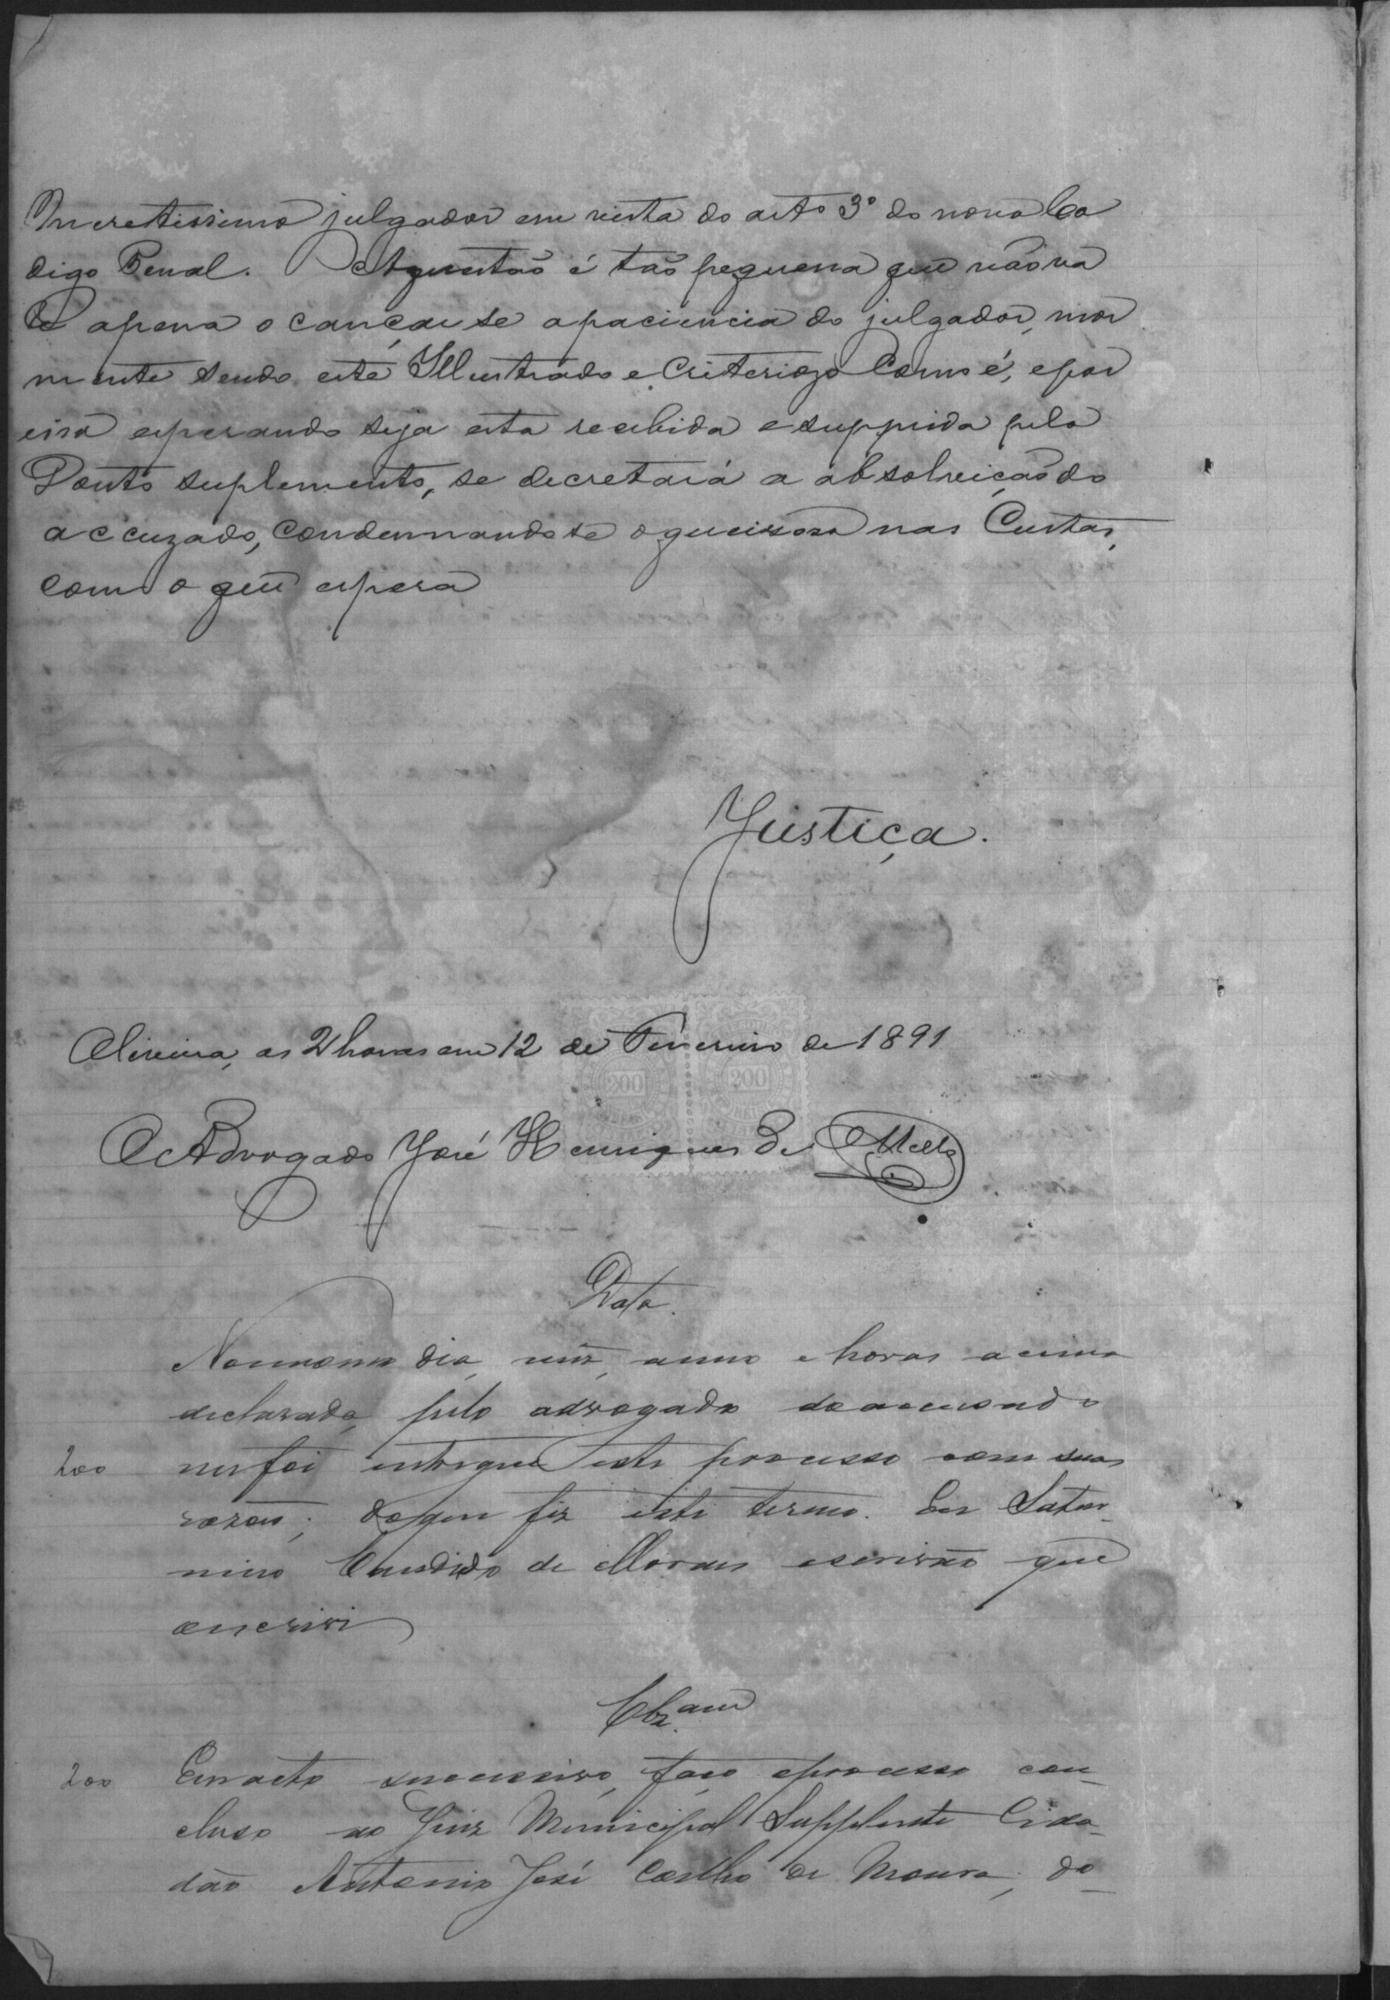 Meretissimo julgador em vista do arto 3º do novo Co
digo Penal. A questão é tão pequena que não va
le apena o cançar se apaciencia do julgador, mor
mente sendo este Illustrado e Criteriozo Como é, epor
isso esperando seja esta recebida e supprida pelo
Douto suplemento, se decretará a absolvição do
accuzado, condemnando se o queixoso nas Custas,
com o que espera
Justiça.
Oliveira, as 2 horas em 12 de Fevereiro de 1891
200 200
O Advogado José Henriques de Mello
Data.
No mesmo dia, mez, anno e horas acima
declarado, pelo advogado do accusado
200 me foi entregue este processo com suas
razões; do que fiz este termo. Eu Satur-
nino Candido de Moraes escrivão que
o escrivi
Clz.am
200 Em acto successivo, faço o processo con-
cluso ao Juiz Municipal Supplente Cida-
dão Antonio José Coelho de Moura; do-